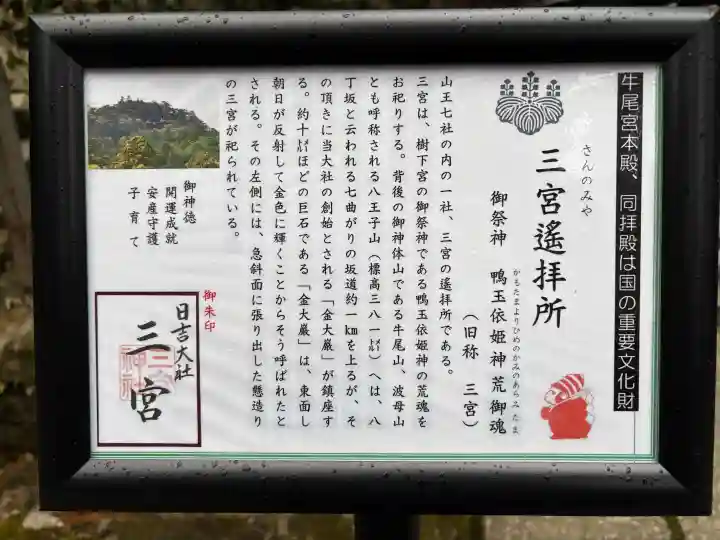 牛尾宮本殿、同拝殿は国の重要文化財
さんのみや
三宮遙拝所
（旧称　三宮）
かもたまよりひめのかみのあらみたま
御祭神　鴨玉依姫神荒御魂
山王七社の内の一社、三宮の遙拝所である。
三宮は、樹下宮の御祭神である鴨玉依姫神の荒魂を
お祀りする。背後の御神体山である牛尾山、波母山
とも呼称される八王子山（標高三八一㍍）へは、八
丁坂と云われる七曲がりの坂道約一㎞を上るが、そ
の頂きに当大社の創始とされる「金大巌」が鎮座す
る。約十㍍ほどの巨石である「金大巌」は、東面し
朝日が反射して金色に輝くことからそう呼ばれたと
される。その左側には、急斜面に張り出した懸造り
の三宮が祀られている。
御神徳
開運成就
安産守護
子育て
御朱印
日吉大社
三宮